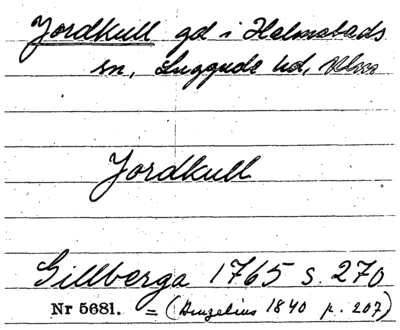 Jordkull gd i Halmstads
sn, Luggude hd, Mlhs
Jordkull
Gillberga 1765 s. 270
Nr 5681. = (Bruzelius 1840 p. 207)